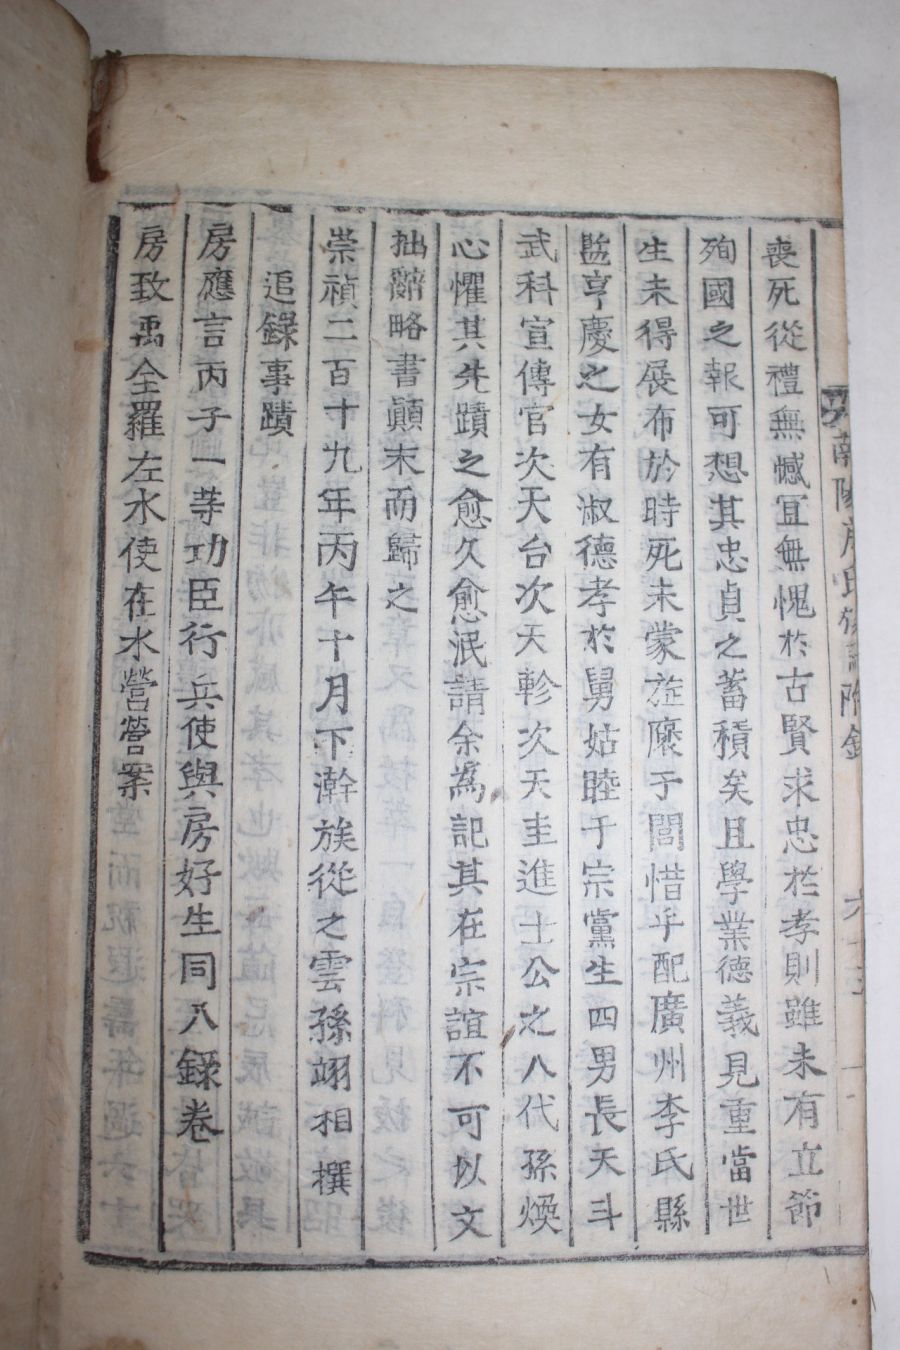 喪死從禮無憾冝無愧於古賢求忠於孝則雖未有立節
殉國之報可想其忠貞之蓄積矣且學業德義見重當世
生未得展布於時死未蒙旌褒于閭惜乎配廣州李氏縣
監亨慶之女有淑德孝於舅姑睦于宗黨生四男長天斗
武科宣傳官次天台次天軫次天圭進士公之八代孫煥
心懼其先蹟之愈久愈泯請余爲記其在宗誼不可以文
拙辭略書顚末而歸之
崇禎二百十九年丙午十月下澣族從之雲孫翊相撰
追錄事蹟
房應言丙子一等功臣行兵使與房好生同入錄卷
房致禹全羅左水使在水營營案
南陽房氏
附錄